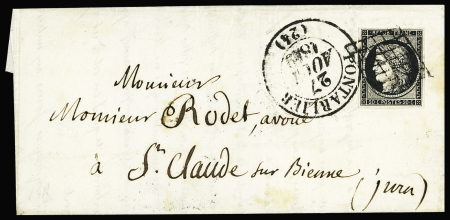 PONTARLIER
27
AOUT
(24)
REPUB. FRANC.
20 C POSTES 20 C
Monsieur
Monsieur Rodet, avoué
à St. Claude sur Bienne
(jura)